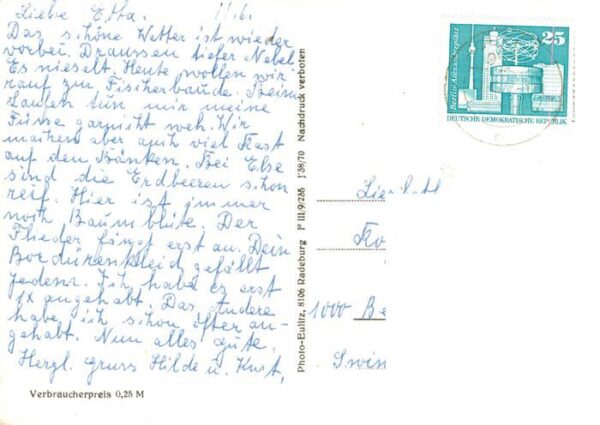 Liebe Ebba. 11.6.
Das schöne Wetter ist wieder
vorbei. Draussen tiefer Nebel
Es nieselt. Heute wollen wir
rauf zur Fischerbaude. Beim
Laufen tun mir meine
Füsse garnicht weh. Wir
machen aber auch viel Rast
auf den Bänken. Bei Else
sind die Erdbeeren schon
reif. Hier ist immer
noch Baumblüte. Der
Flieder fängt erst an. Dein
Bordürenkleid gefällt
jedem. Ich habe es erst
1x angehabt. Das andere
habe ich schon öfter an-
gehabt. Nun alles gute.
Herzl. gruss Hilde u. Kurt,
Verbraucherpreis 0,25 M
Photo-Eulitz, 8106 Radeburg P III/9/235 J 38/70 Nachdruck verboten
Berlin-Alexanderplatz
25
DEUTSCHE DEMOKRATISCHE REPUBLIK
1000 Be
Swin